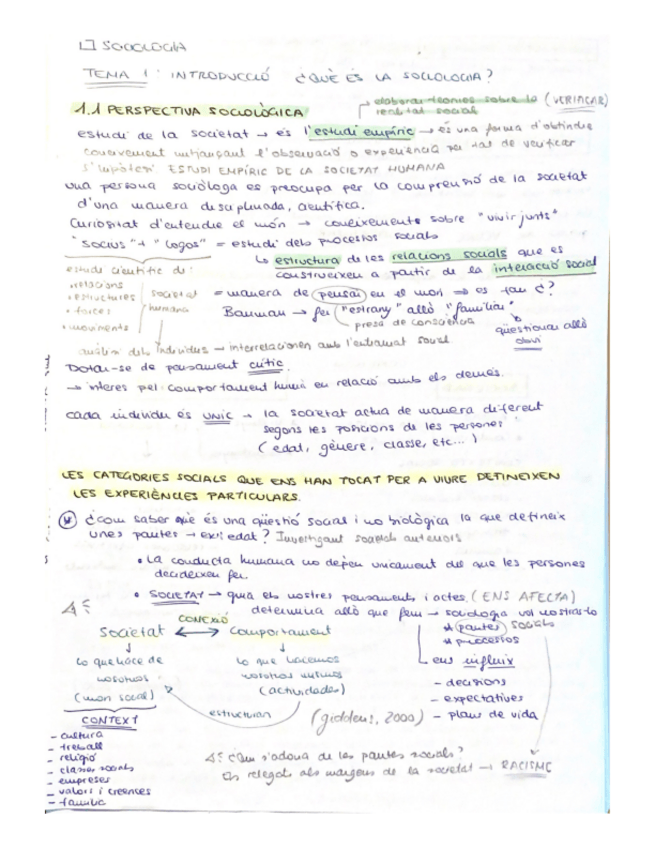 SOCIOLOGIA
TEMA 1: INTRODUCCIÓ ¿QUÈ ÉS LA SOCIOLOGIA?
1.1 PERSPECTIVA SOCIOLÒGICA
elaborar teories sobre la (VERIFICAR)
realitat social
estudi de la societat → és l'estudi empíric → és una forma d'obtindre
coneixement mitjançant l'observació o experiència per tal de verificar
s'hipòtesi ESTUDI EMPÍRIC DE LA SOCIETAT HUMANA
una persona sociòloga es preocupa per la comprensió de la societat
d'una manera disciplinada, científica.
Curiositat d'entendre el món → coneixements sobre "vivir junts"
"Socius" + "Logos" = estudi dels processos socials
↳ estructura de les relacions socials que es
construeixen a partir de la interacció social
estudi científic de:
• relacions
• estructures
• forces
• moviments
societat
humana
= manera de pensar en el món → es fan ¿?
Bauman → fer "estrany" allò "familiar"
presa de consciència
qüestionar allò
obvi
anàlisi dels individus → interrelacionen amb l'entramat social
Dotar-se de pensament crític.
→ interès pel comportament humà en relació amb els demés.
cada individu és ÚNIC → la societat actua de manera diferent
segons les posicions de les persones
(edat, gènere, classe, etc...)
LES CATEGORIES SOCIALS QUE ENS HAN TOCAT PER A VIURE DEFINEIXEN
LES EXPERIÈNCIES PARTICULARS.
¿com saber que és una qüestió social i no biològica la que defineix
unes pautes → ex: edat? Investigant societats anteriors
• La conducta humana no depèn unicament del que les persones
decideixen fer.
• SOCIETAT → guia els nostres pensaments i actes. (ENS AFECTA)
determina allò que fem → sociologia vol mostrar-lo
* pautes socials
* processos
CONEXIÓ
Societat ↔ comportament
lo que hace de
nosotros
(món social)
lo que hacemos
nosotros mismos
(actividades)
estructuran
ens influix
- decisions
- expectatives
- plans de vida
(giddens, 2000)
CONTEXT
- cultura
- treball
- religió
- classes socials
- empreses
- valors i creences
- família
¿com s'adona de les pautes socials?
Els relegats als margens de la societat → RACISME